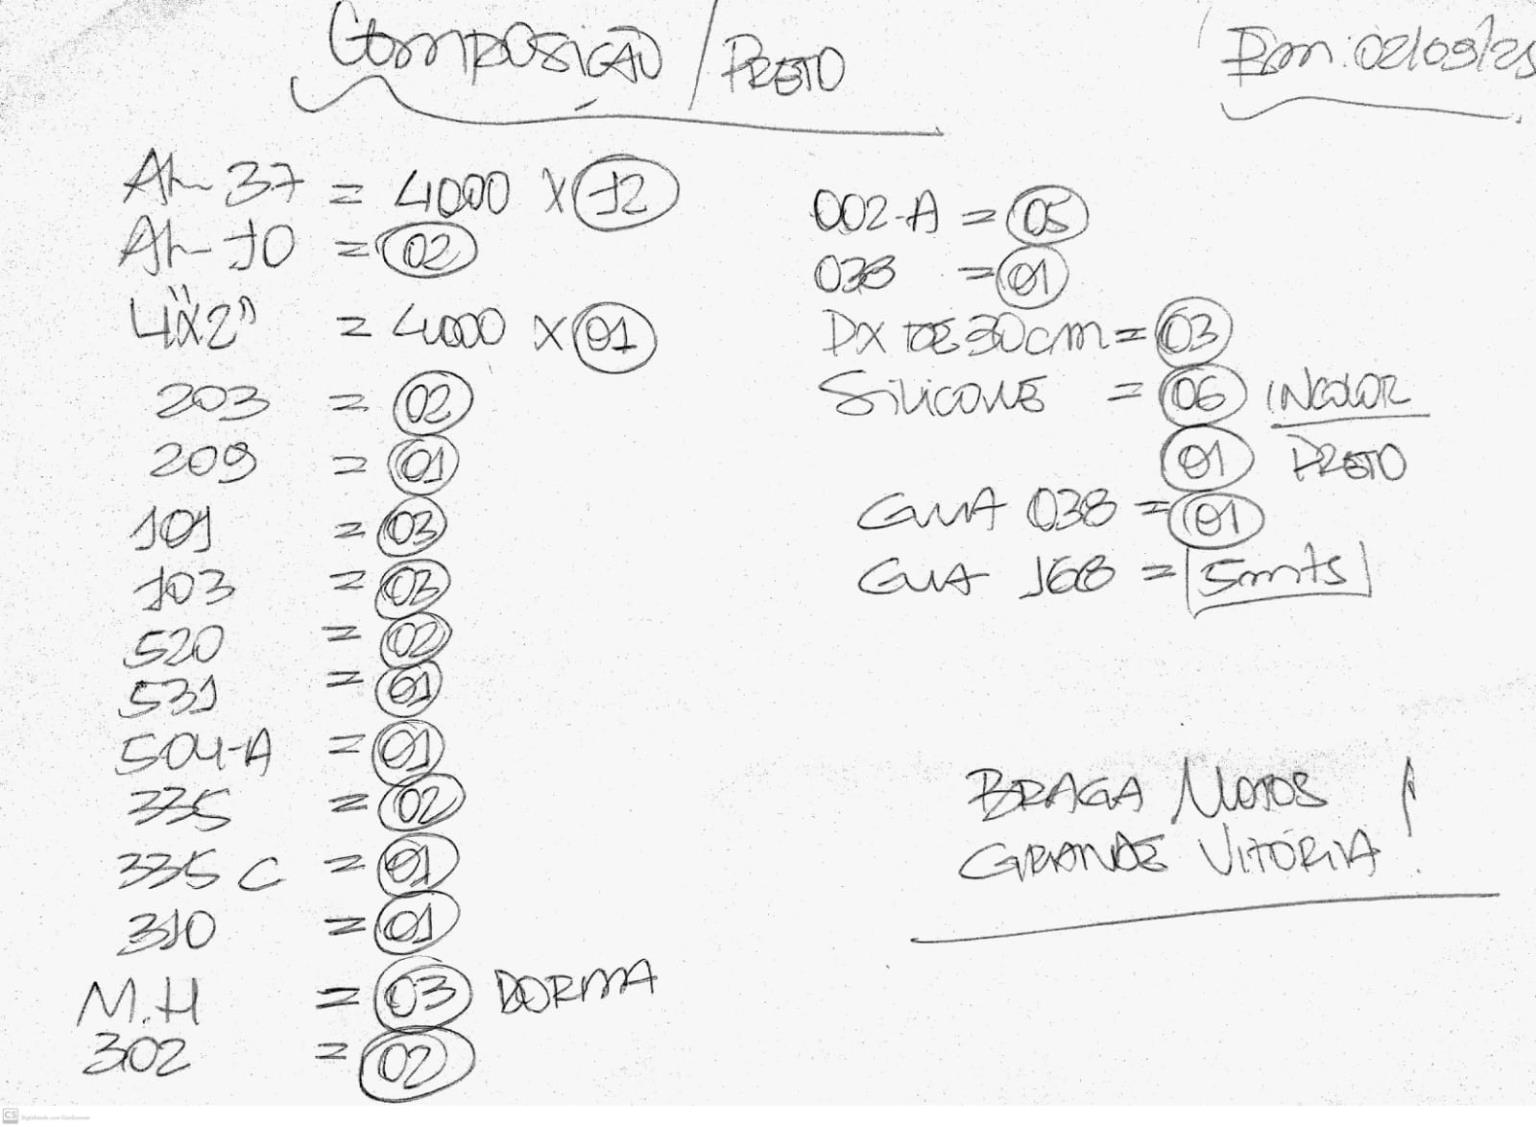 COMPOSIÇÃO / PRETO
Em: 02/09/25
AL-37 = 4000 X 12
AL-10 = 02
4"X2" = 4000 X 01
203 = 02
209 = 01
101 = 03
103 = 03
520 = 02
531 = 01
504-A = 01
335 = 02
335 C = 01
310 = 01
M.H = 03 DORMA
302 = 02
002-A = 05
038 = 01
PX DE 30cm = 03
SILICONE = 06 INCOLOR
01 PRETO
GUIA 038 = 01
GUIA 168 = 5mts
BRAGA MOTOS
GRANDE VITÓRIA !